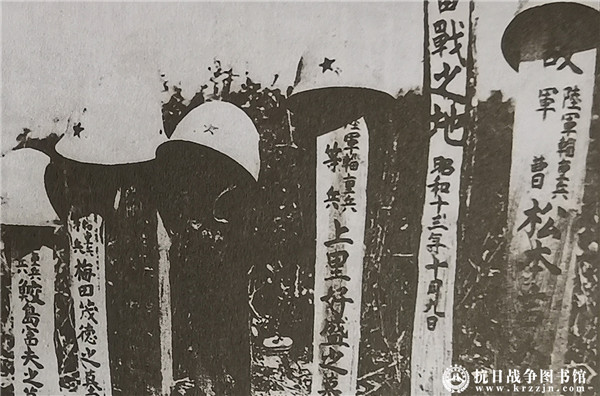 故
陸軍輜重兵
軍曹
松本
戰之地
昭和十三年十月九日
陸軍輜重兵
等兵
上里好盛之墓
重兵
兵
梅田茂德之
重兵
兵
鮫島富夫之
抗日战争图书馆
www.krzzjn.com